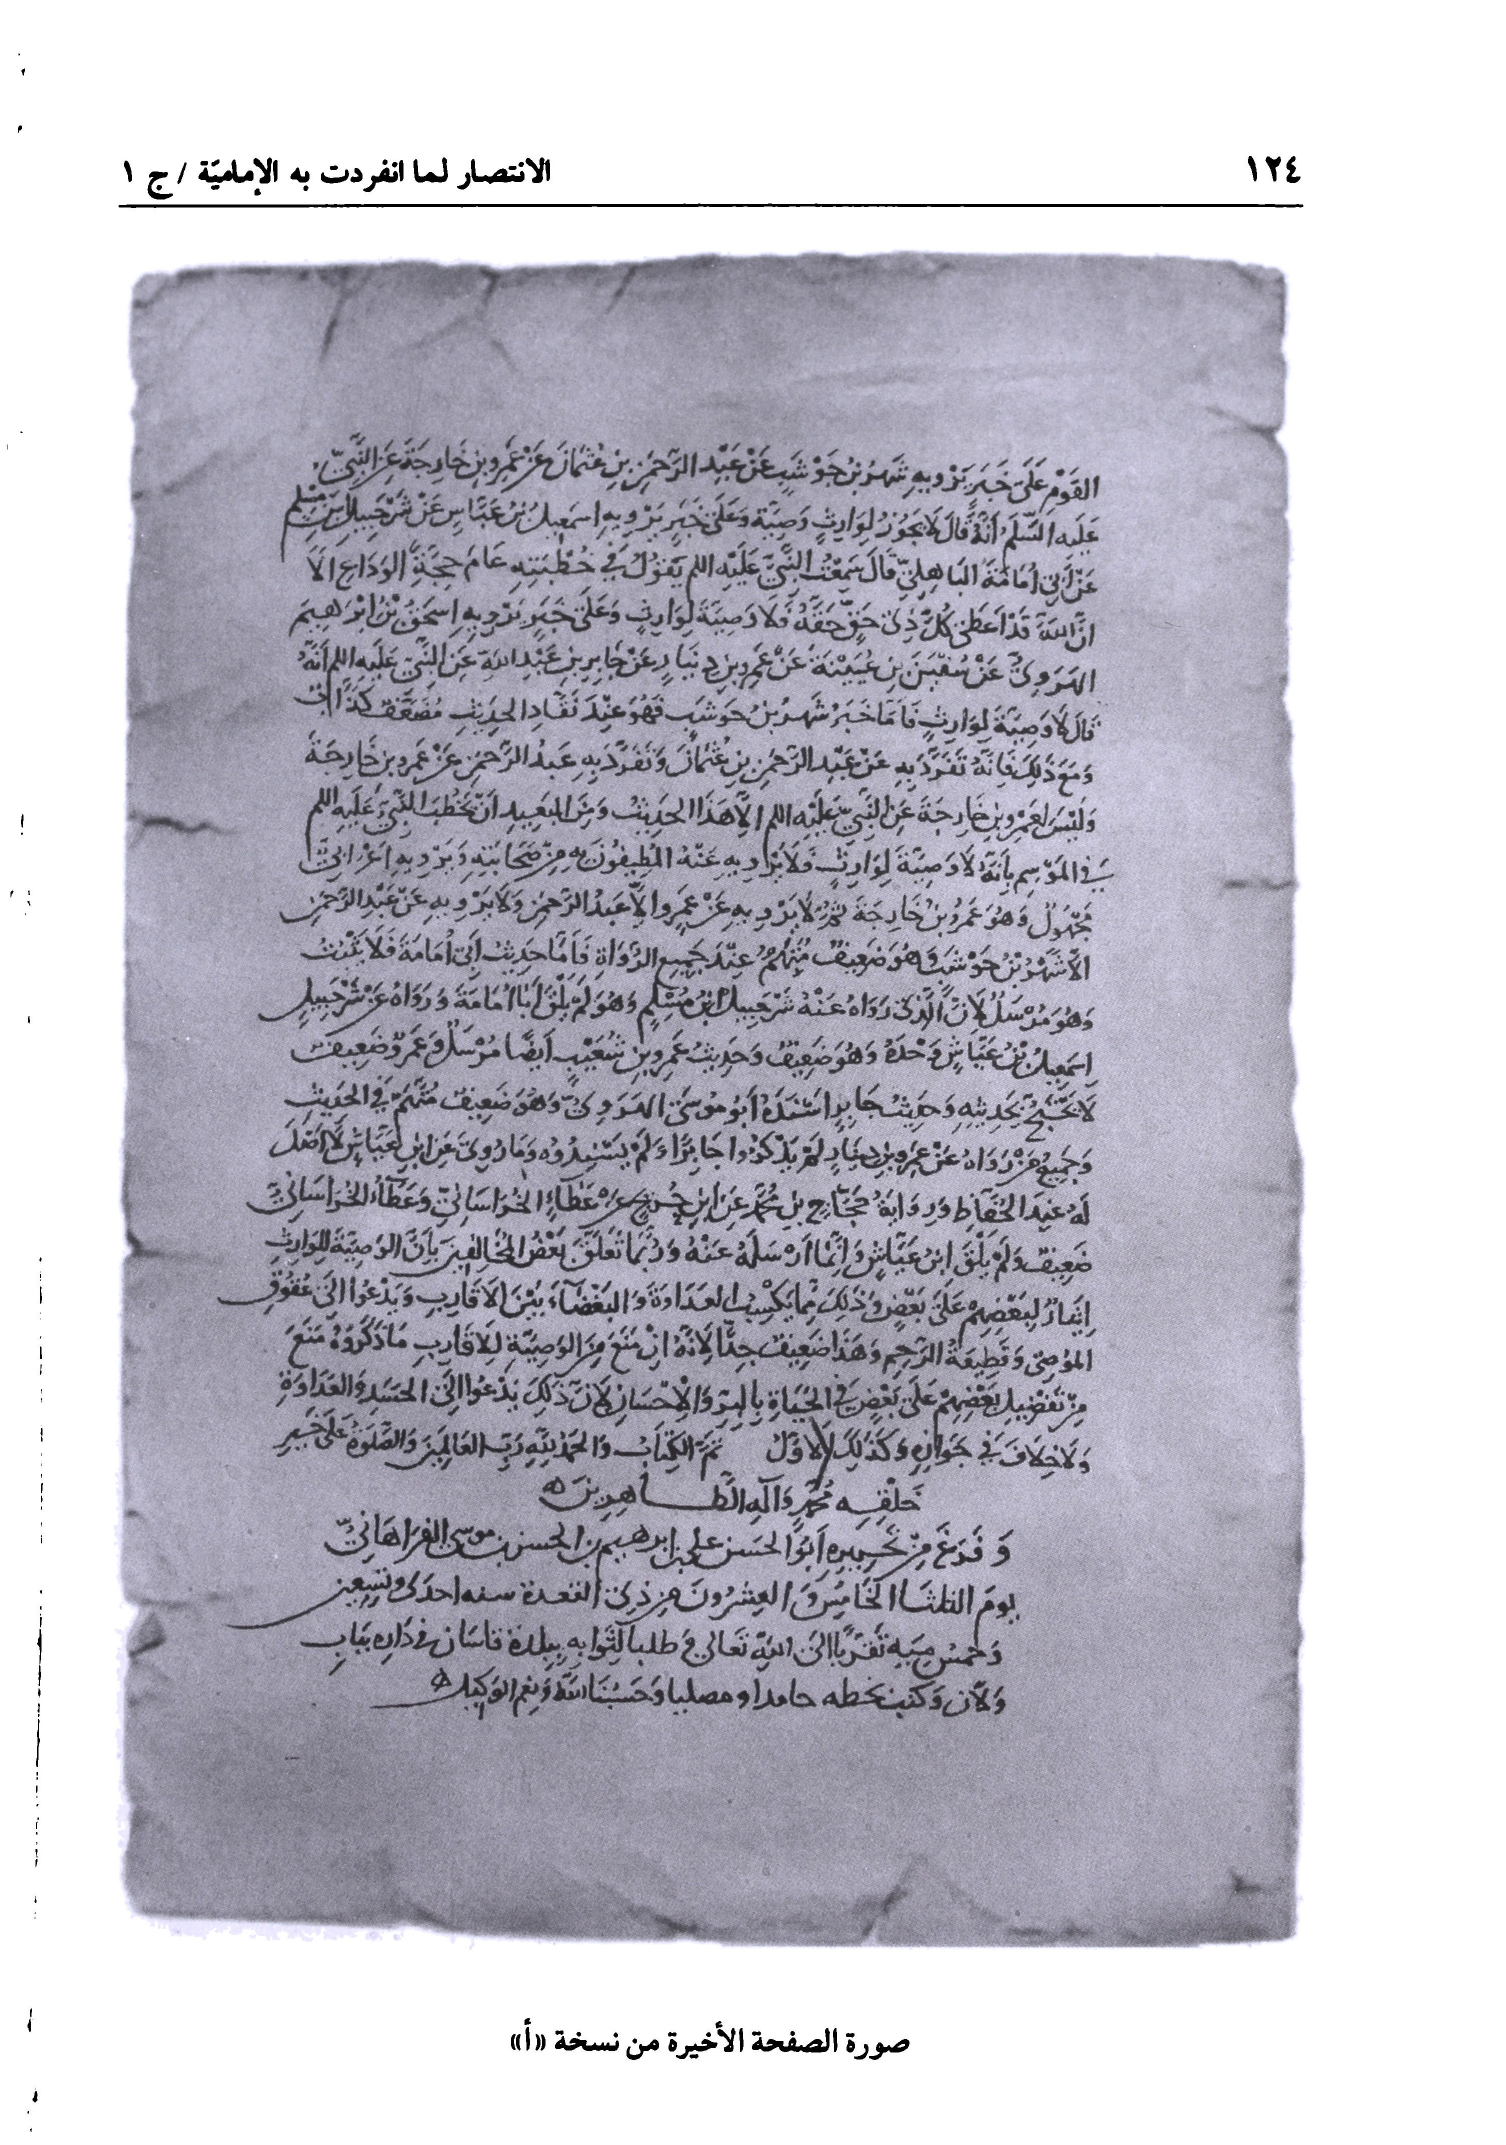 ١٢٤
الانتصار لما انفردت به الإماميّة / ج ١
القَوْمِ عَلَى خَبَرٍ يَرْوِيهِ شَهْرُ بْنُ حَوْشَبٍ عَنْ عَبْدِ الرَّحْمَنِ بْنِ عُثْمَانَ عَنْ عَمْرِو بْنِ خَارِجَةَ عَنِ النَّبِيِّ
عَلَيهِ السَّلَمُ أَنَّهُ قَالَ لَا يَجُوزُ لِوَارِثٍ وَصِيَّة وَعَلَى خَبَرٍ يَرْوِيهِ اسمَعِيلُ بْنُ عَيَّاسٍ عَنْ شَرْحَبِيلَ بْنِ مُسْلِمٍ
عَنْ أَبِي أُمَامَةَ البَاهِلِيِّ قَالَ سَمِعْتُ النَّبِيَّ عَلَيْهِ اللم يَقُولُ فِي خُطْبَتِهِ عَامَ حَجَّةِ الوَدَاعِ الَا
انَّ اللَّهَ قَدْ اَعطَى كُلَّ ذِي حَقٍّ حَقَّهُ فَلَا وَصِيَّةَ لِوَارِثٍ وَعَلَى خَبَرٍ يَرْوِيهِ اِسحَقُ بْنُ ابْرَهِيمَ
الهَرَوِيُّ عَنْ سُفْيَنَ بِنِ عُيَيْنَةَ عَنْ عَمْرِو بنِ دِينَارٍ عَنْ جَابِرِ بنِ عَبْدِ اللَّهِ عَنِ النَّبِيِّ عَلَيهِ اللم أَنَّهُ
قَالَ لَا وَصِيَّةَ لِوَارِثٍ فَاَمَّا خَبَرُ شَهْرِ بْنِ حَوشَبٍ فَهُوَ عِنْدَ نُقَّادِ الحَدِيثِ مُضَعَّفٌ كَذَّابٌ
وَمَعَ ذَلِكَ فَاِنَّهُ تَفَرَّدَ بِهِ عَنْ عَبْدِ الرَّحْمَنِ بنِ عُثْمَانَ وَتَفَرَّدَ بِهِ عَبدُ الرَّحْمَنِ عَنْ عَمْرِو بنِ خَارِجَةَ
وَلَيْسَ لِعَمْرِو بْنِ خَارِجَةَ عَنِ النَّبِيِّ عَلَيْهِ اللم اِلَّا هَذَا الحَدِيثُ وَمِنَ البَعِيدِ اَنْ يَخْطُبَ النَّبِيُّ عَلَيهِ اللم
فِي المَوْسِمِ بِاَنَّهُ لَا وَصِيَّةَ لِوَارِثٍ فَلَا يَرْوِيهِ عَنْهُ المُطِيفُونَ بِهِ مِنْ صَحَابَتِهِ وَيَرْوِيهِ اَعْرَابِيٌّ
مَجْهُولٌ وَهُوَ عَمْرُو بْنُ خَارِجَةَ ثُمَّ لَا يَرْوِيهِ عَنْ عَمْرٍو اِلَّا عَبدُ الرَّحْمَنِ وَلَا يَرْوِيهِ عَنْ عَبْدِ الرَّحْمَنِ
الَّا شَهْرُ بْنُ حَوْشَبٍ وَهُوَ ضَعِيفٌ مُتَّهَمٌ عِنْدَ جَمِيعِ الرُّوَاةِ فَاَمَّا حَدِيثُ اَبِي اُمَامَةَ فَلَا يَثْبُتُ
وَهُوَ مُرْسَلٌ لِاَنَّ الَّذِي رَوَاهُ عَنْهُ شَرْحَبِيلُ بْنُ مُسْلِمٍ وَهُوَ لَمْ يَلْقَ اَبَا اُمَامَةَ وَرَوَاهُ عَنْ شَرْحَبِيلٍ
اِسمَعِيلُ بْنُ عَيَّاشٍ وَحْدَهُ وَهُوَ ضَعِيفٌ وَحَدِيثُ عَمْرِو بنِ شُعَيْبٍ اَيضًا مُرْسَلٌ وَعَمْرٌو ضَعِيفٌ
لَا يُحْتَجُّ بِحَدِيثِهِ وَحَدِيثُ جَابِرٍ اَسْنَدَهُ اَبُو مُوسَى الهَرَوِيُّ وَهُوَ ضَعِيفٌ مُتَّهَمٌ فِي الحَدِيثِ
وَجَمِيعُ مَنْ رَوَاهُ عَنْ عَمْرِو بنِ دِينَارٍ لَمْ يَذْكُرُوا جَابِرًا وَلَمْ يُسْنِدُوهُ وَمَا رُوِيَ عَنِ ابْنِ عَبَّاسٍ لَا اَصْلَ
لَهُ عِنْدَ الحُفَّاظِ وَرِوَايَةُ حَجَّاجِ بنِ مُحَمَّدٍ عَنِ ابْنِ جُرَيْجٍ عَنْ عَطَاءٍ الخُرَاسَانِيِّ وَعَطَاءٌ الخُرَاسَانِيُّ
ضَعِيفٌ وَلَمْ يَلْقَ ابْنَ عَبَّاسٍ وَاِنَّمَا اَرْسَلَهُ عَنْهُ وَرُبَّمَا تَعَلَّقَ بَعْضُ المُخَالِفِينَ بِاَنَّ الوَصِيَّةَ لِلوَارِثِ
اِيثَارٌ لِبَعْضِهِمْ عَلَى بَعْضٍ وَذَلِكَ مِمَّا يَكْسِبُ العَدَاوَةَ وَالبَغْضَاءَ بَيْنَ الاَقَارِبِ وَيَدْعُوا اِلَى عُقُوقِ
المُوصِي وَقَطِيعَةِ الرَّحِمِ وَهَذَا ضَعِيفٌ جِدًّا لِاَنَّهُ اِنْ مَنَعَ مِنَ الوَصِيَّةِ لِلاَقَارِبِ مَا ذَكَرُوهُ مَنَعَ
مِنْ تَفْضِيلِ بَعْضِهِمْ عَلَى بَعْضٍ فِي الحَيَاةِ بِالبِرِّ وَالاِحْسَانِ لِاَنَّ ذَلِكَ يَدْعُوا اِلَى الحَسَدِ وَالعَدَاوَةِ
وَلَا خِلَافَ فِي جَوَازِهِ وَكَذَلِكَ الاَوَّلُ تَمَّ الكِتَابُ وَالحَمْدُ لِلَّهِ رَبِّ العَالَمِينَ وَالصَّلَوةُ عَلَى خَيرِ
خَلْقِهِ مُحَمَّدٍ وَآلِهِ الطَّاهِرِينَ
وَفَرَغَ مِنْ تَحْرِيرِهِ اَبُو الحَسَن علي بن ابرهيم بن الحسن بن موسى الفَرَاهَانِيُّ
يومَ الثلثا الخَامِس وَالعِشْرُونَ مِن ذِي القعدة سنه احدى وتسعين
وَخمس مِيَهِ تَقَرُّبًا اِلَى اللَّهِ تَعَالَى وَ طلبا لِثَوابِهِ بِبلدة قاسَان في دَارِه بِبَابِ
وَلَان وَكتب بخطه حامدا و مصليا وَحَسْبُنَا اللَّهُ وَنِعْمَ الوَكيل
صورة الصفحة الأخيرة من نسخة «أ»